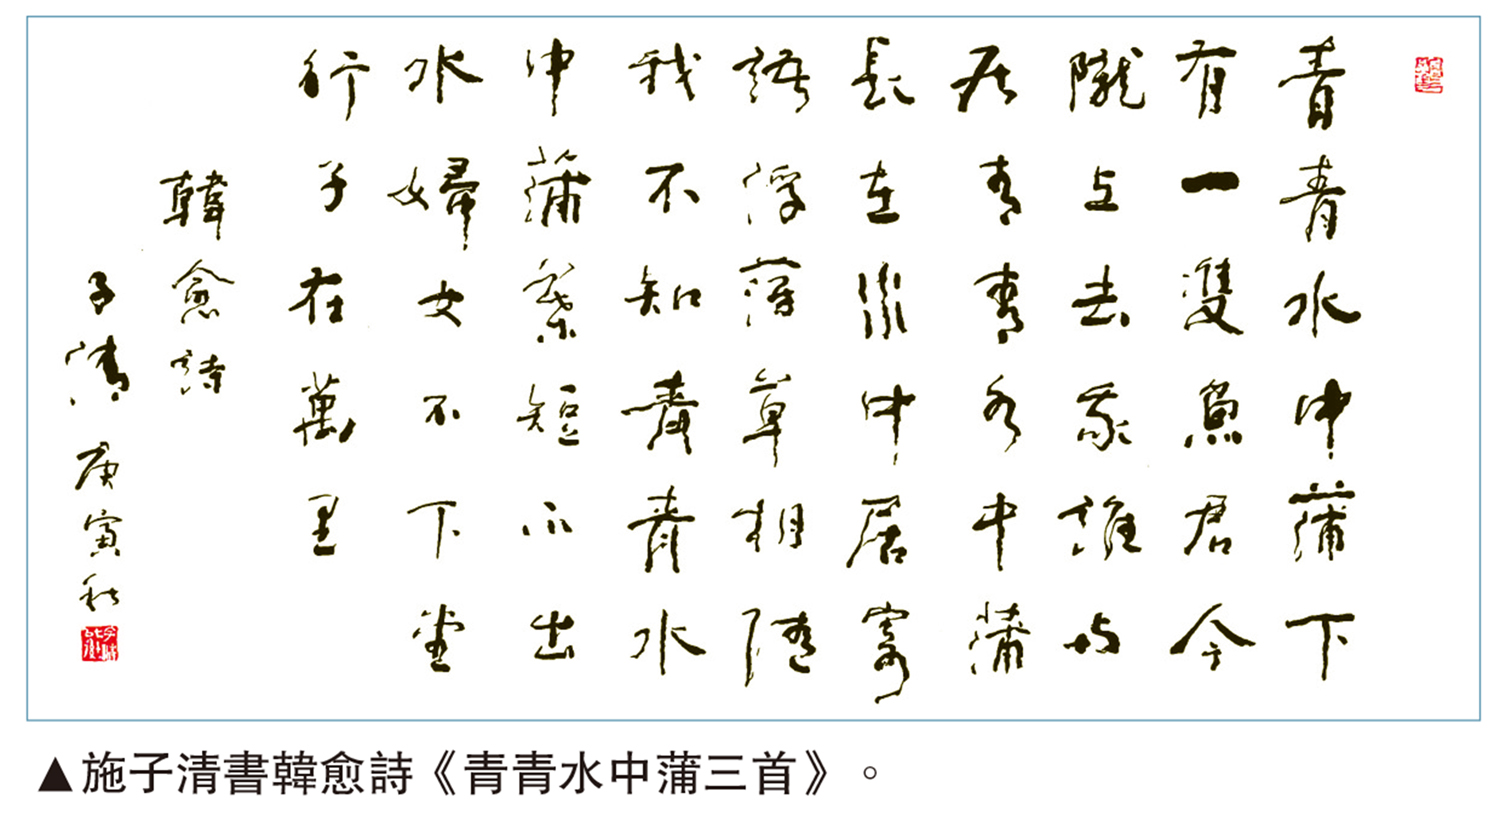 青青水中蒲下
有一雙魚君今
隴上去我誰與
居青青水中蒲
長在水中居寄
語浮萍草相隨
我不知青青水
中蒲葉短不出
水婦女不下堂
行子在萬里
韓愈詩
子清 庚寅秋
▲施子清書韓愈詩《青青水中蒲三首》。